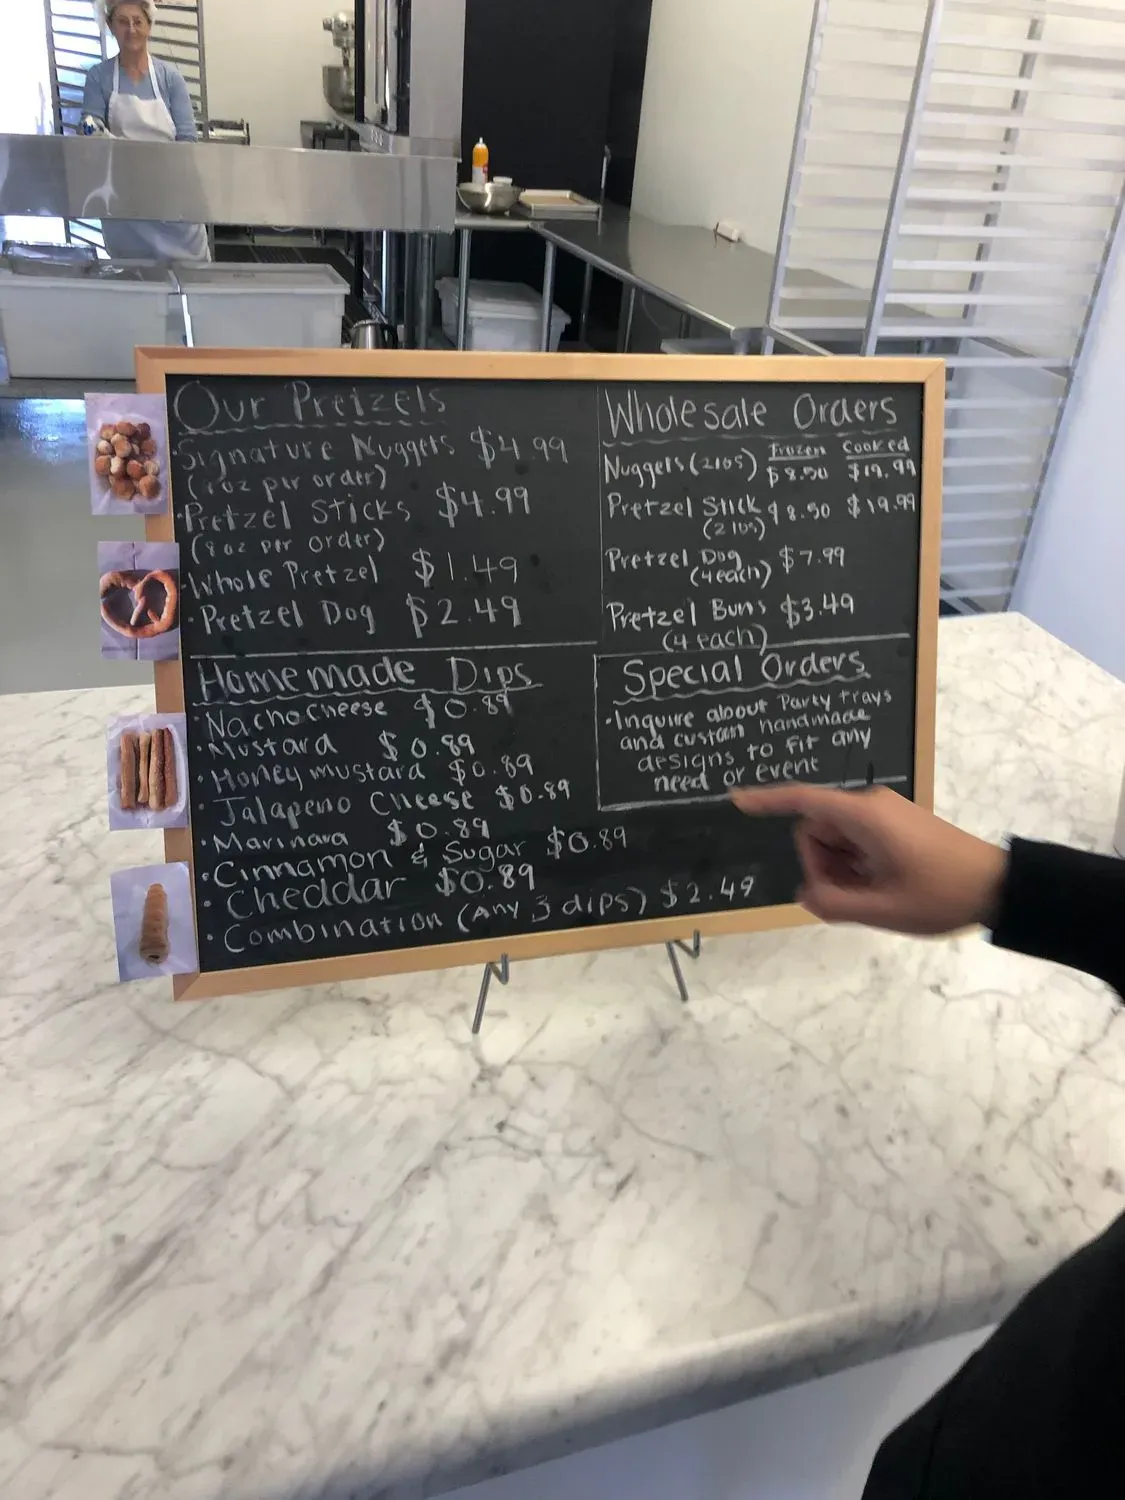 Our Pretzels
· Signature Nuggets $4.99
(8oz per order)
· Pretzel Sticks $4.99
(8 oz per order)
· Whole Pretzel $1.49
· Pretzel Dog $2.49
Homemade Dips
· Nacho Cheese $0.89
· Mustard $0.89
· Honey mustard $0.89
· Jalapeno Cheese $0.89
· Marinara $0.89
· Cinnamon & Sugar $0.89
· Cheddar $0.89
· Combination (Any 3 dips) $2.49
Wholesale Orders
Frozen Cooked
Nuggets (2lbs) $8.50 $19.99
Pretzel Stick $8.50 $19.99
(2 lbs)
Pretzel Dog $7.99
(4 each)
Pretzel Buns $3.49
(4 each)
Special Orders
· Inquire about Party trays
and custom handmade
designs to fit any
need or event